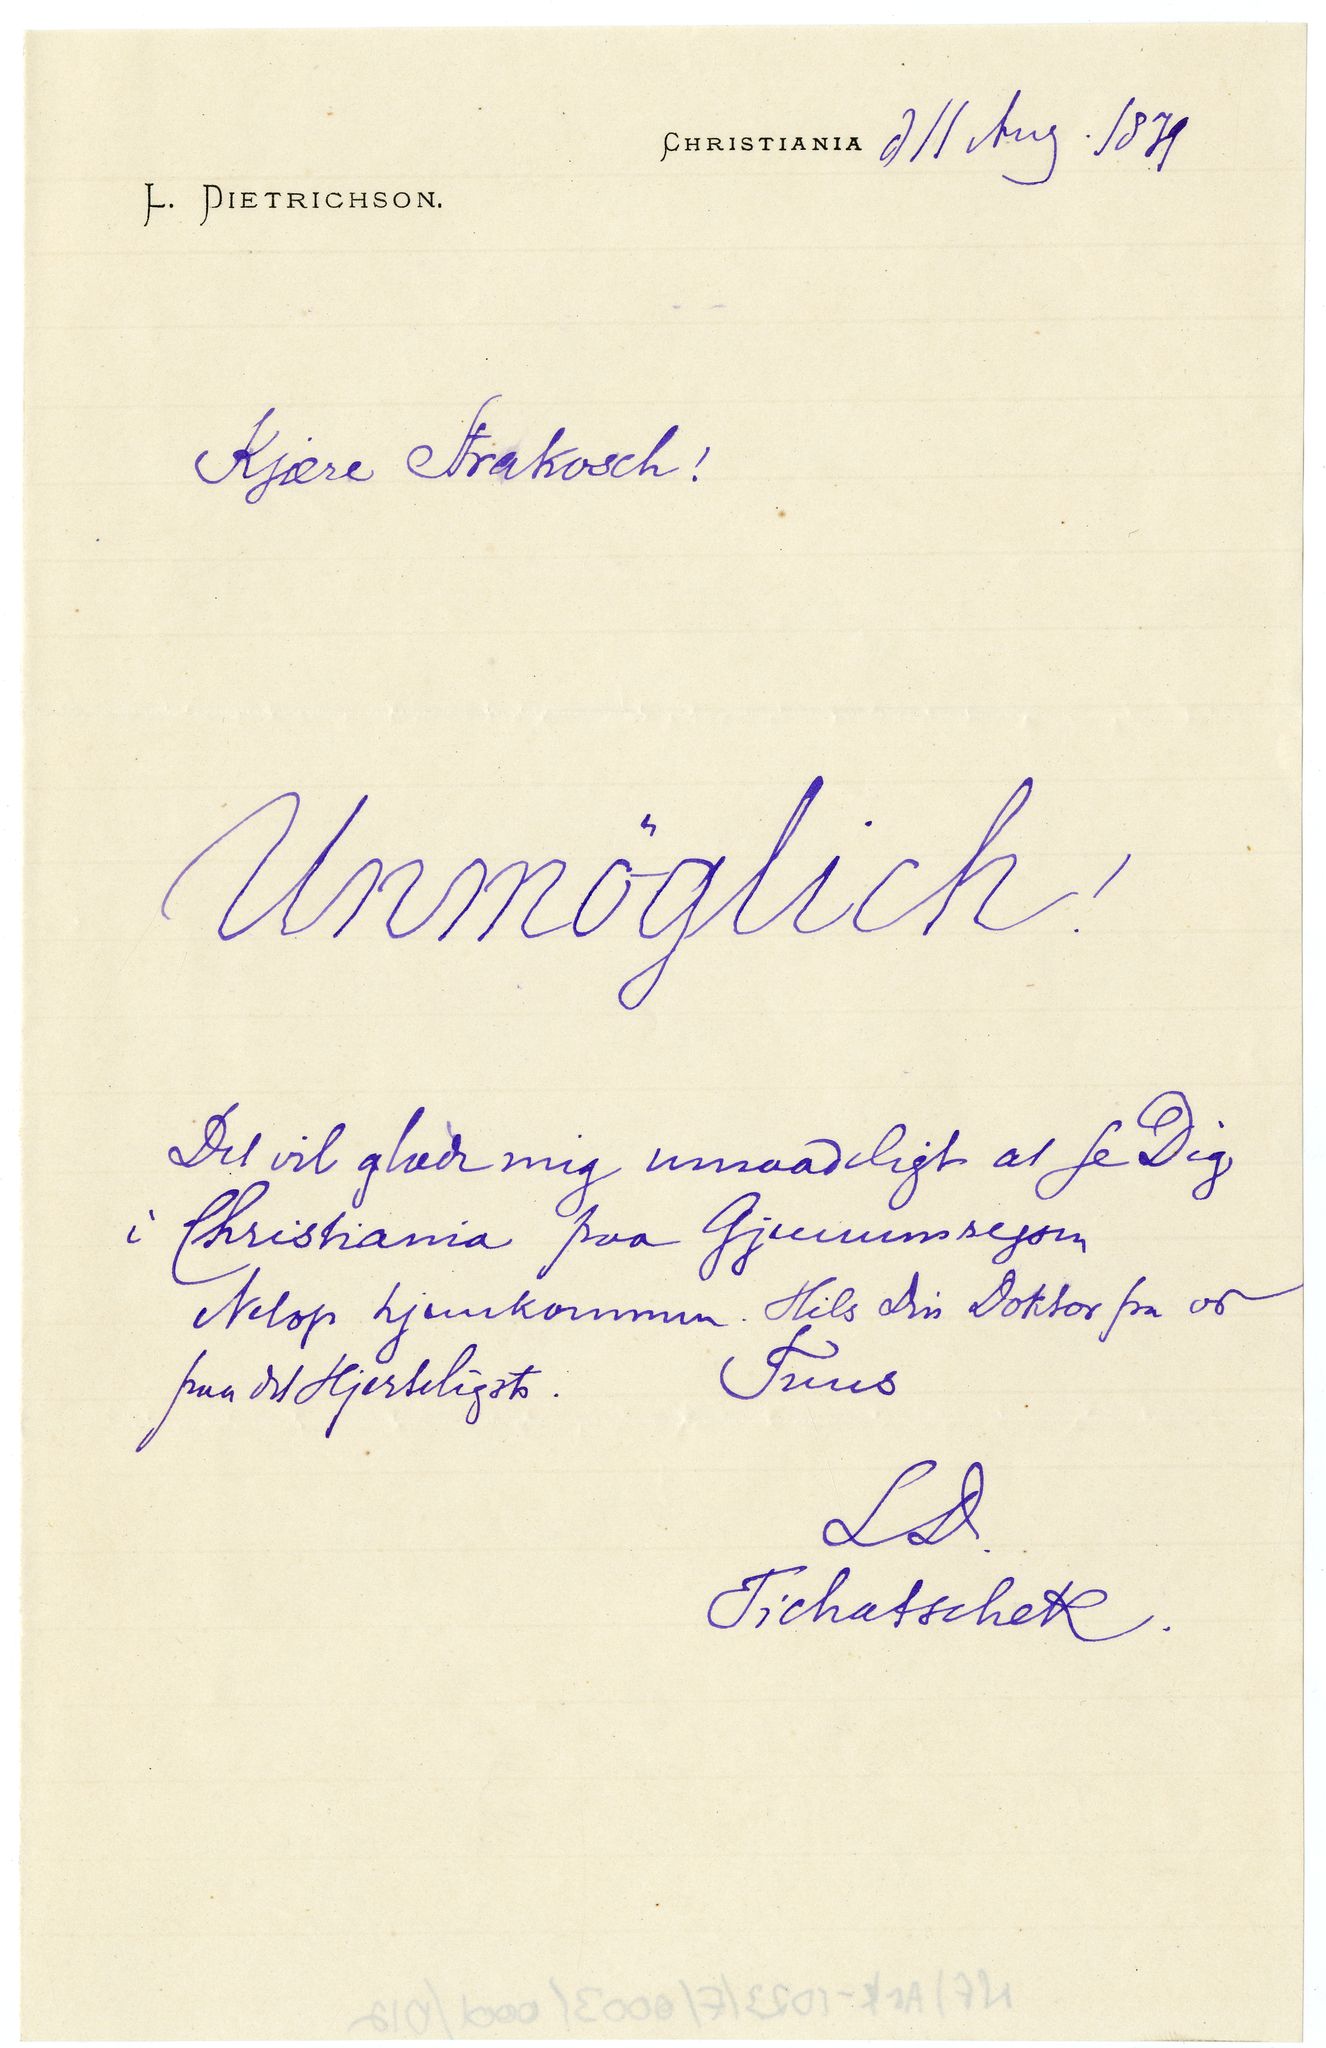 CHRISTIANIA d 11 Aug. 1879
L. DIETRICHSON.
Kjære Strakosch!
Unmöglich!
Det vil glæde mig umaadeligt at se Dig
i Christiania paa Gjennemrejsen
Netop hjemkommen. Hils Din Doktor fra os
paa det Hjerteligste. Tuus
LD.
Tichatschek.